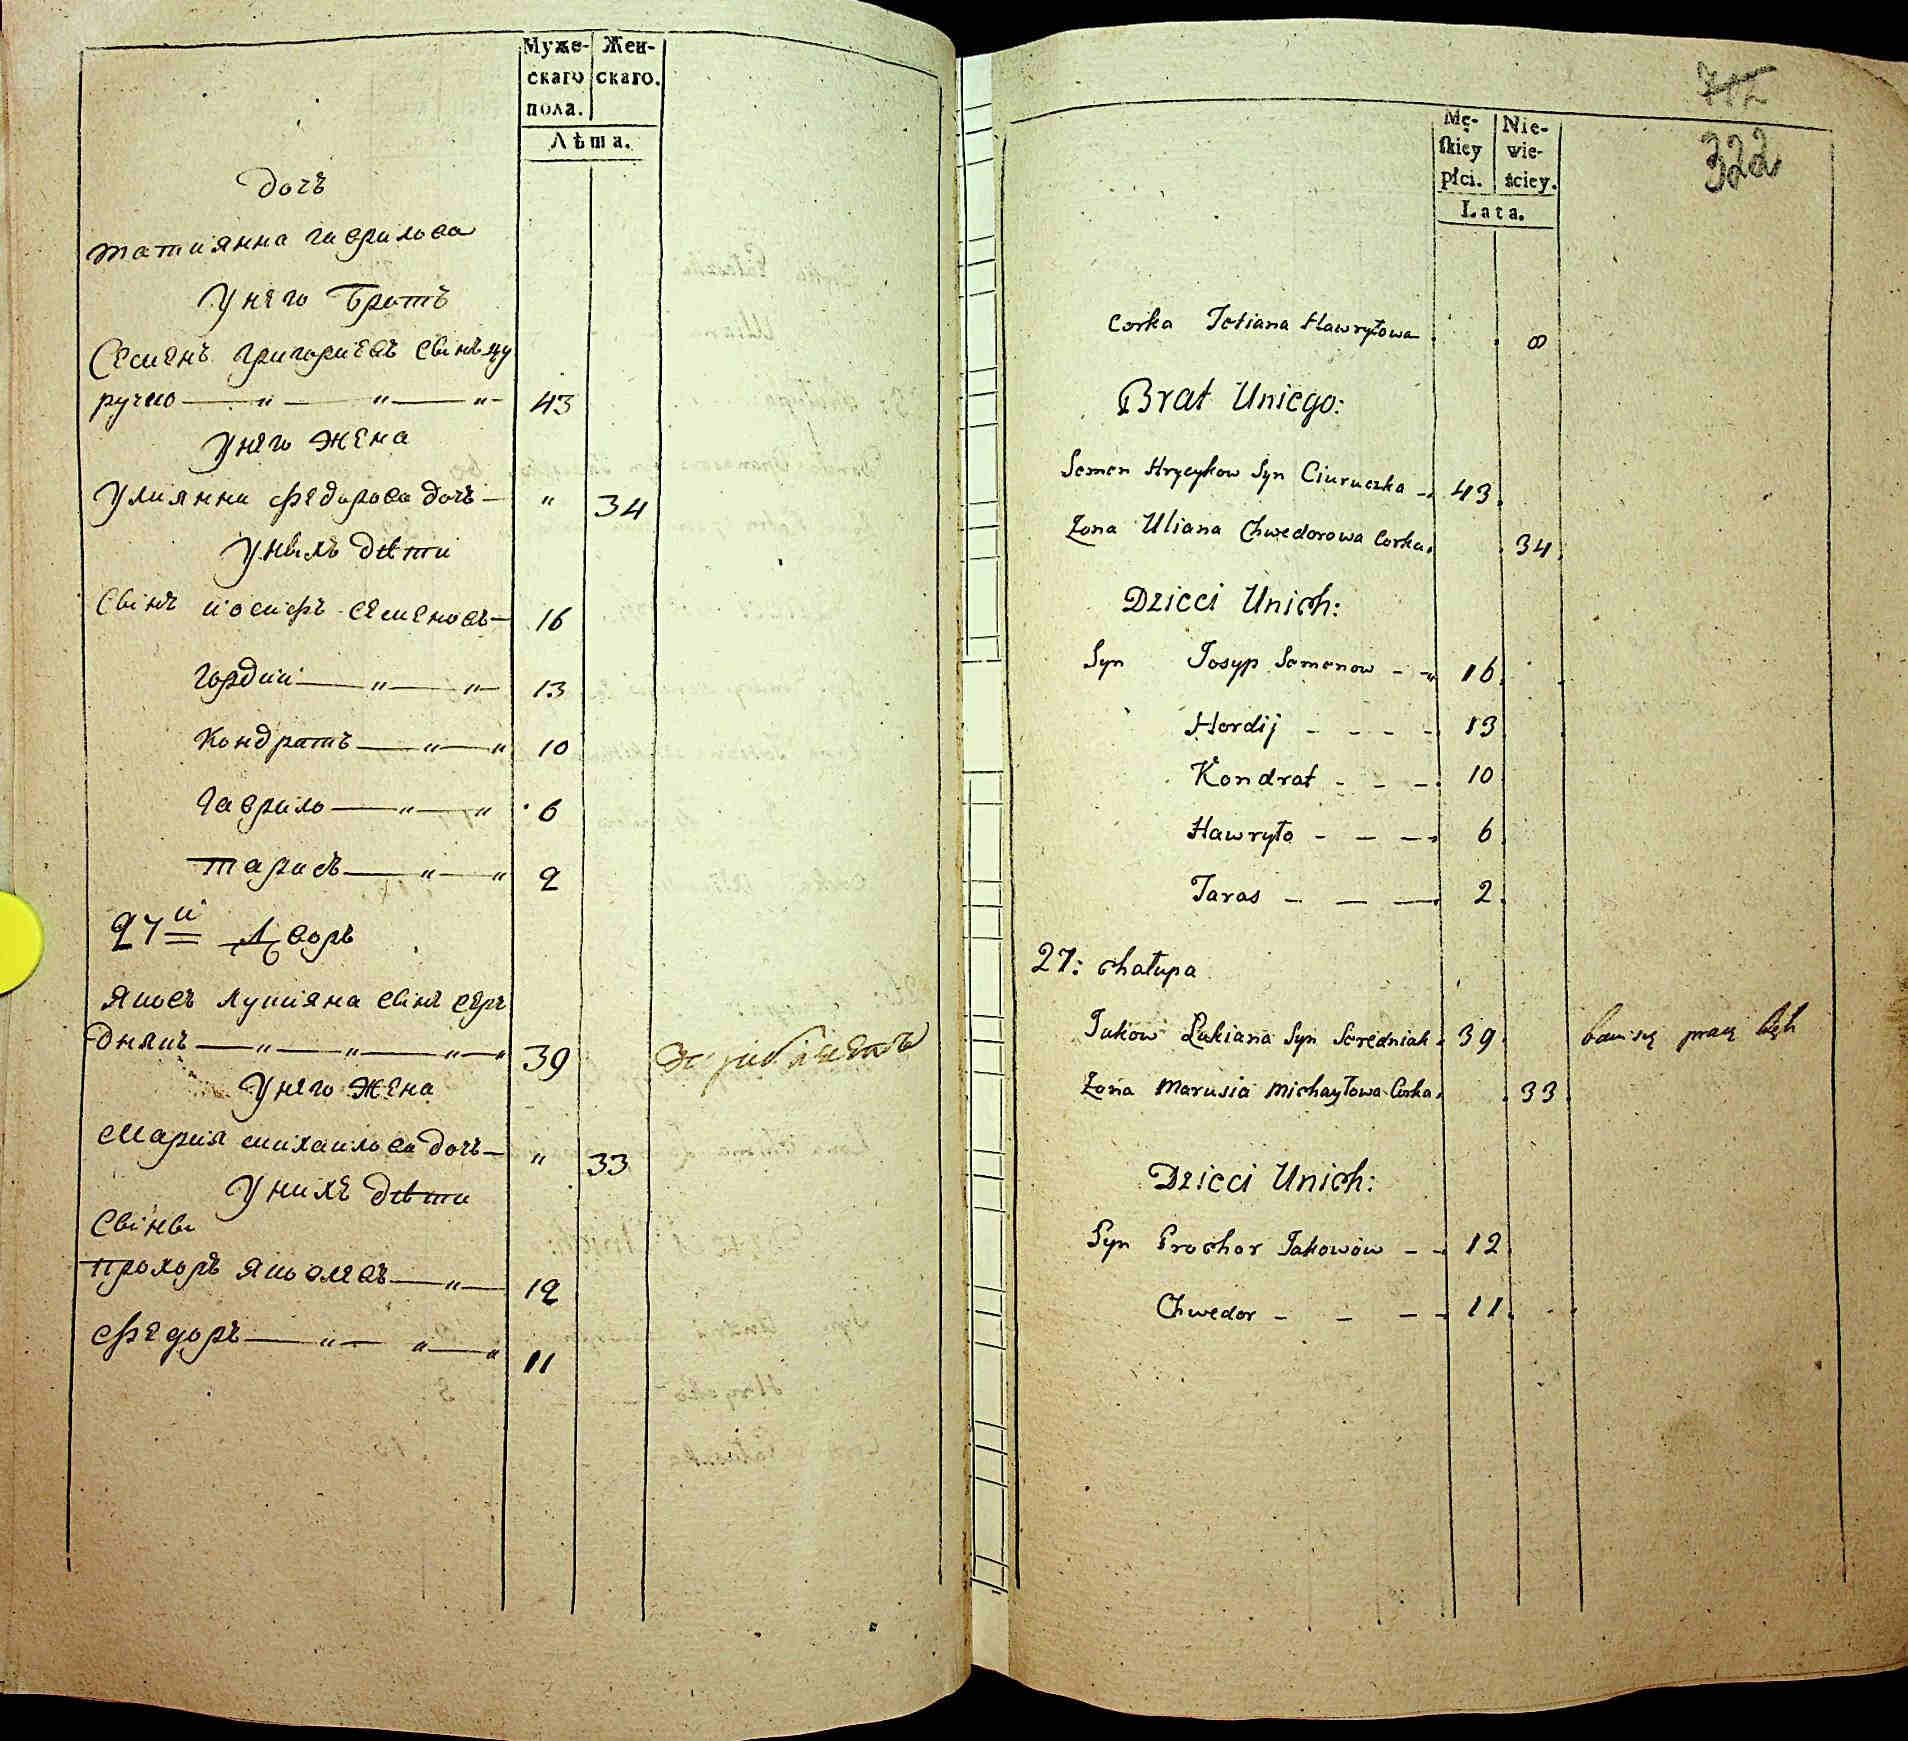 Муже-
скаго
пола.
Жен-
скаго.
Лѣта.
дочь
татиянна гаврилова
У него Братъ
Семенъ григориевъ свінъ цу
ручко — " — " — " —
43
У него жена
Улиянна федорова дочь —
" 34
У нвіхъ дѣти
свінъ иосифъ семеновъ —
16
гордий — " — " —
13
Кондратъ — " — "
10
гаврило — " — "
6
тарасъ — " — "
2
27й Дворъ
яковъ лукияна свінъ сере
днякъ — " — " — " — "
39
У него жена
Мария михаилова дочь —
" 33
У нихъ дѣти
свінві
прохоръ яковлевъ — " —
12
федоръ — " — " — "
11
322
Mę-
skiey
płci.
Nie-
wie-
ściey.
Lata.
Corka Tetiana Hawryłowa
8
Brat Uniego:
Semen Hrycykow Syn Ciuruczka -
43
Zona Uliana Chwedorowa Corka
34
Dzieci Unich:
Syn Josyp Semenow - -
16
Hordij - - - -
13
Kondrat - - -
10
Hawryło - - -
6
Taras - - -
2
27: chałupa
Jakow Łukiana Syn Seredniak
39
Zona Marusia Michayłowa Corka
33
Dzieci Unich:
Syn Prochor Jakowow - -
12
Chwedor - - - -
11